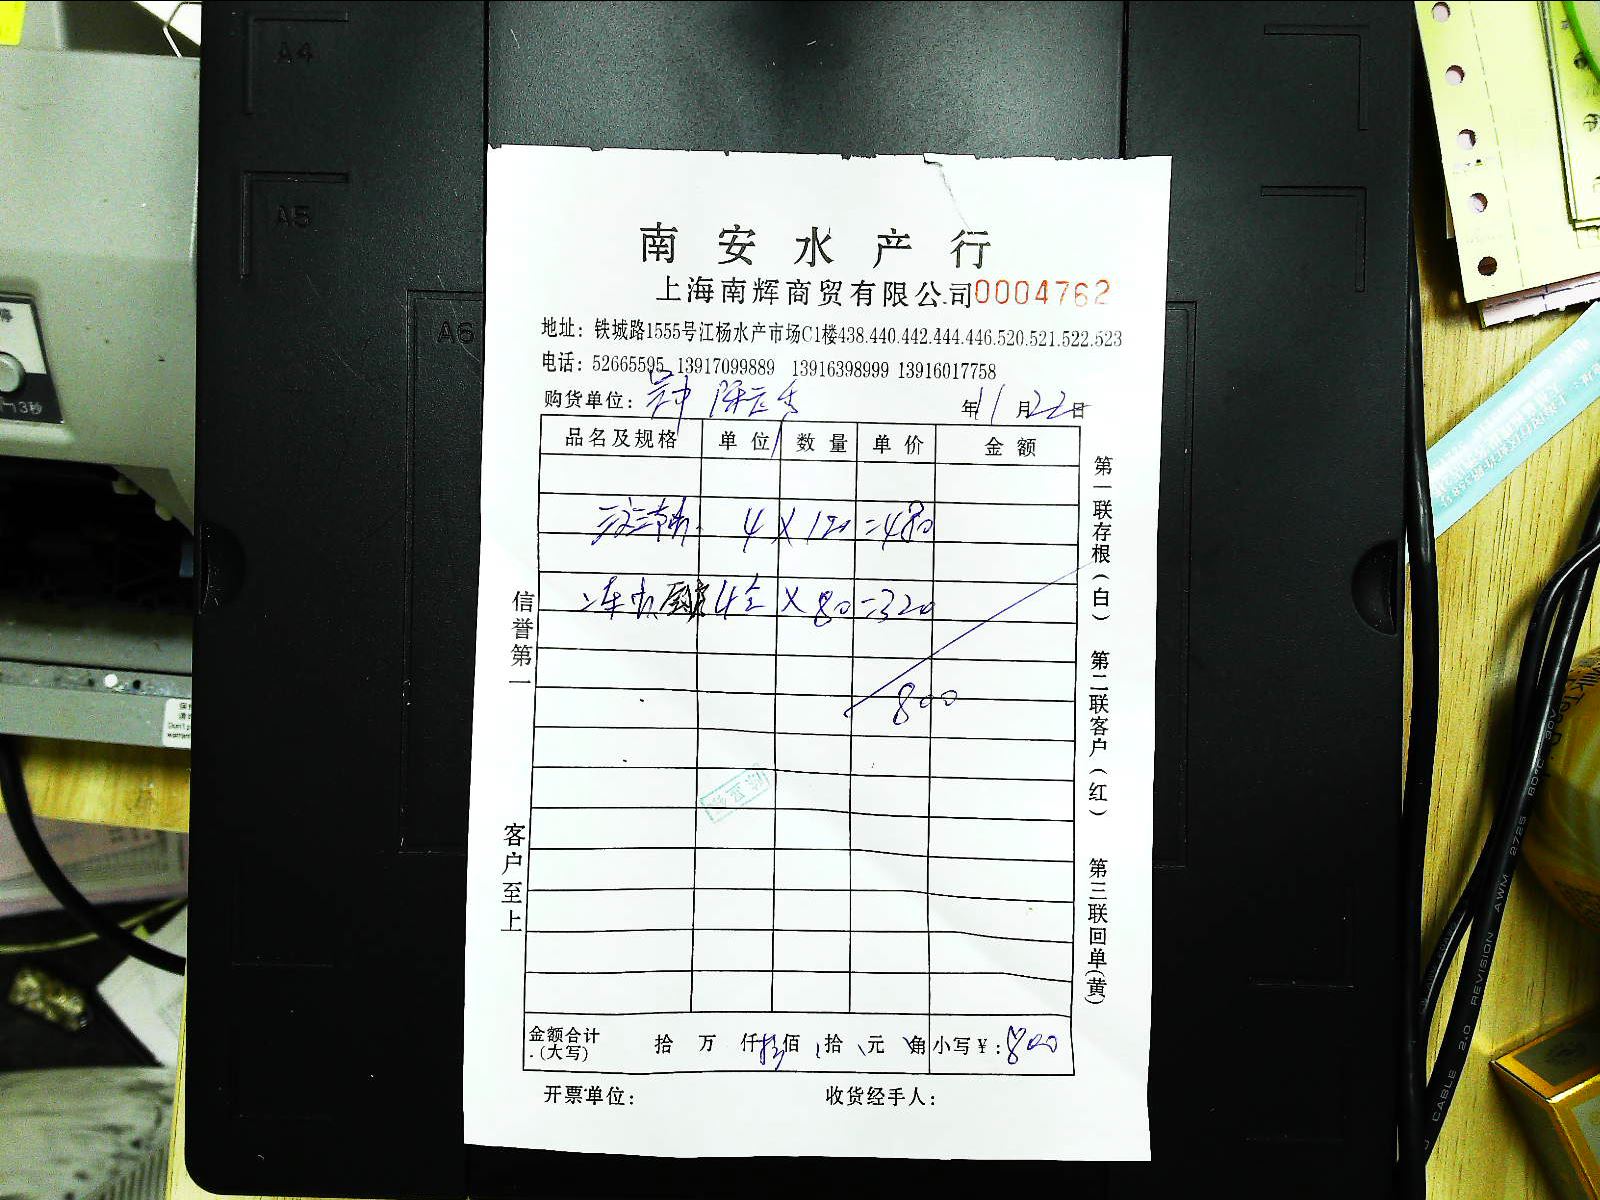 A4
A5
A6
南安水产行
上海南辉商贸有限公司0004762
地址：铁城路1555号江杨水产市场C1楼438.440.442.444.446.520.521.522.523
电话：52665595 13917099889 13916398999 13916017758
购货单位： 年11月22日
品名及规格 单位 数量 单价 金额
4 X 120 =480
4 X 80 =320
800
金额合计(大写) 拾 万 仟 佰 拾 元 角 小写¥：800
开票单位： 收货经手人：
信誉第一
客户至上
第一联存根(白) 第二联客户(红) 第三联回单(黄)